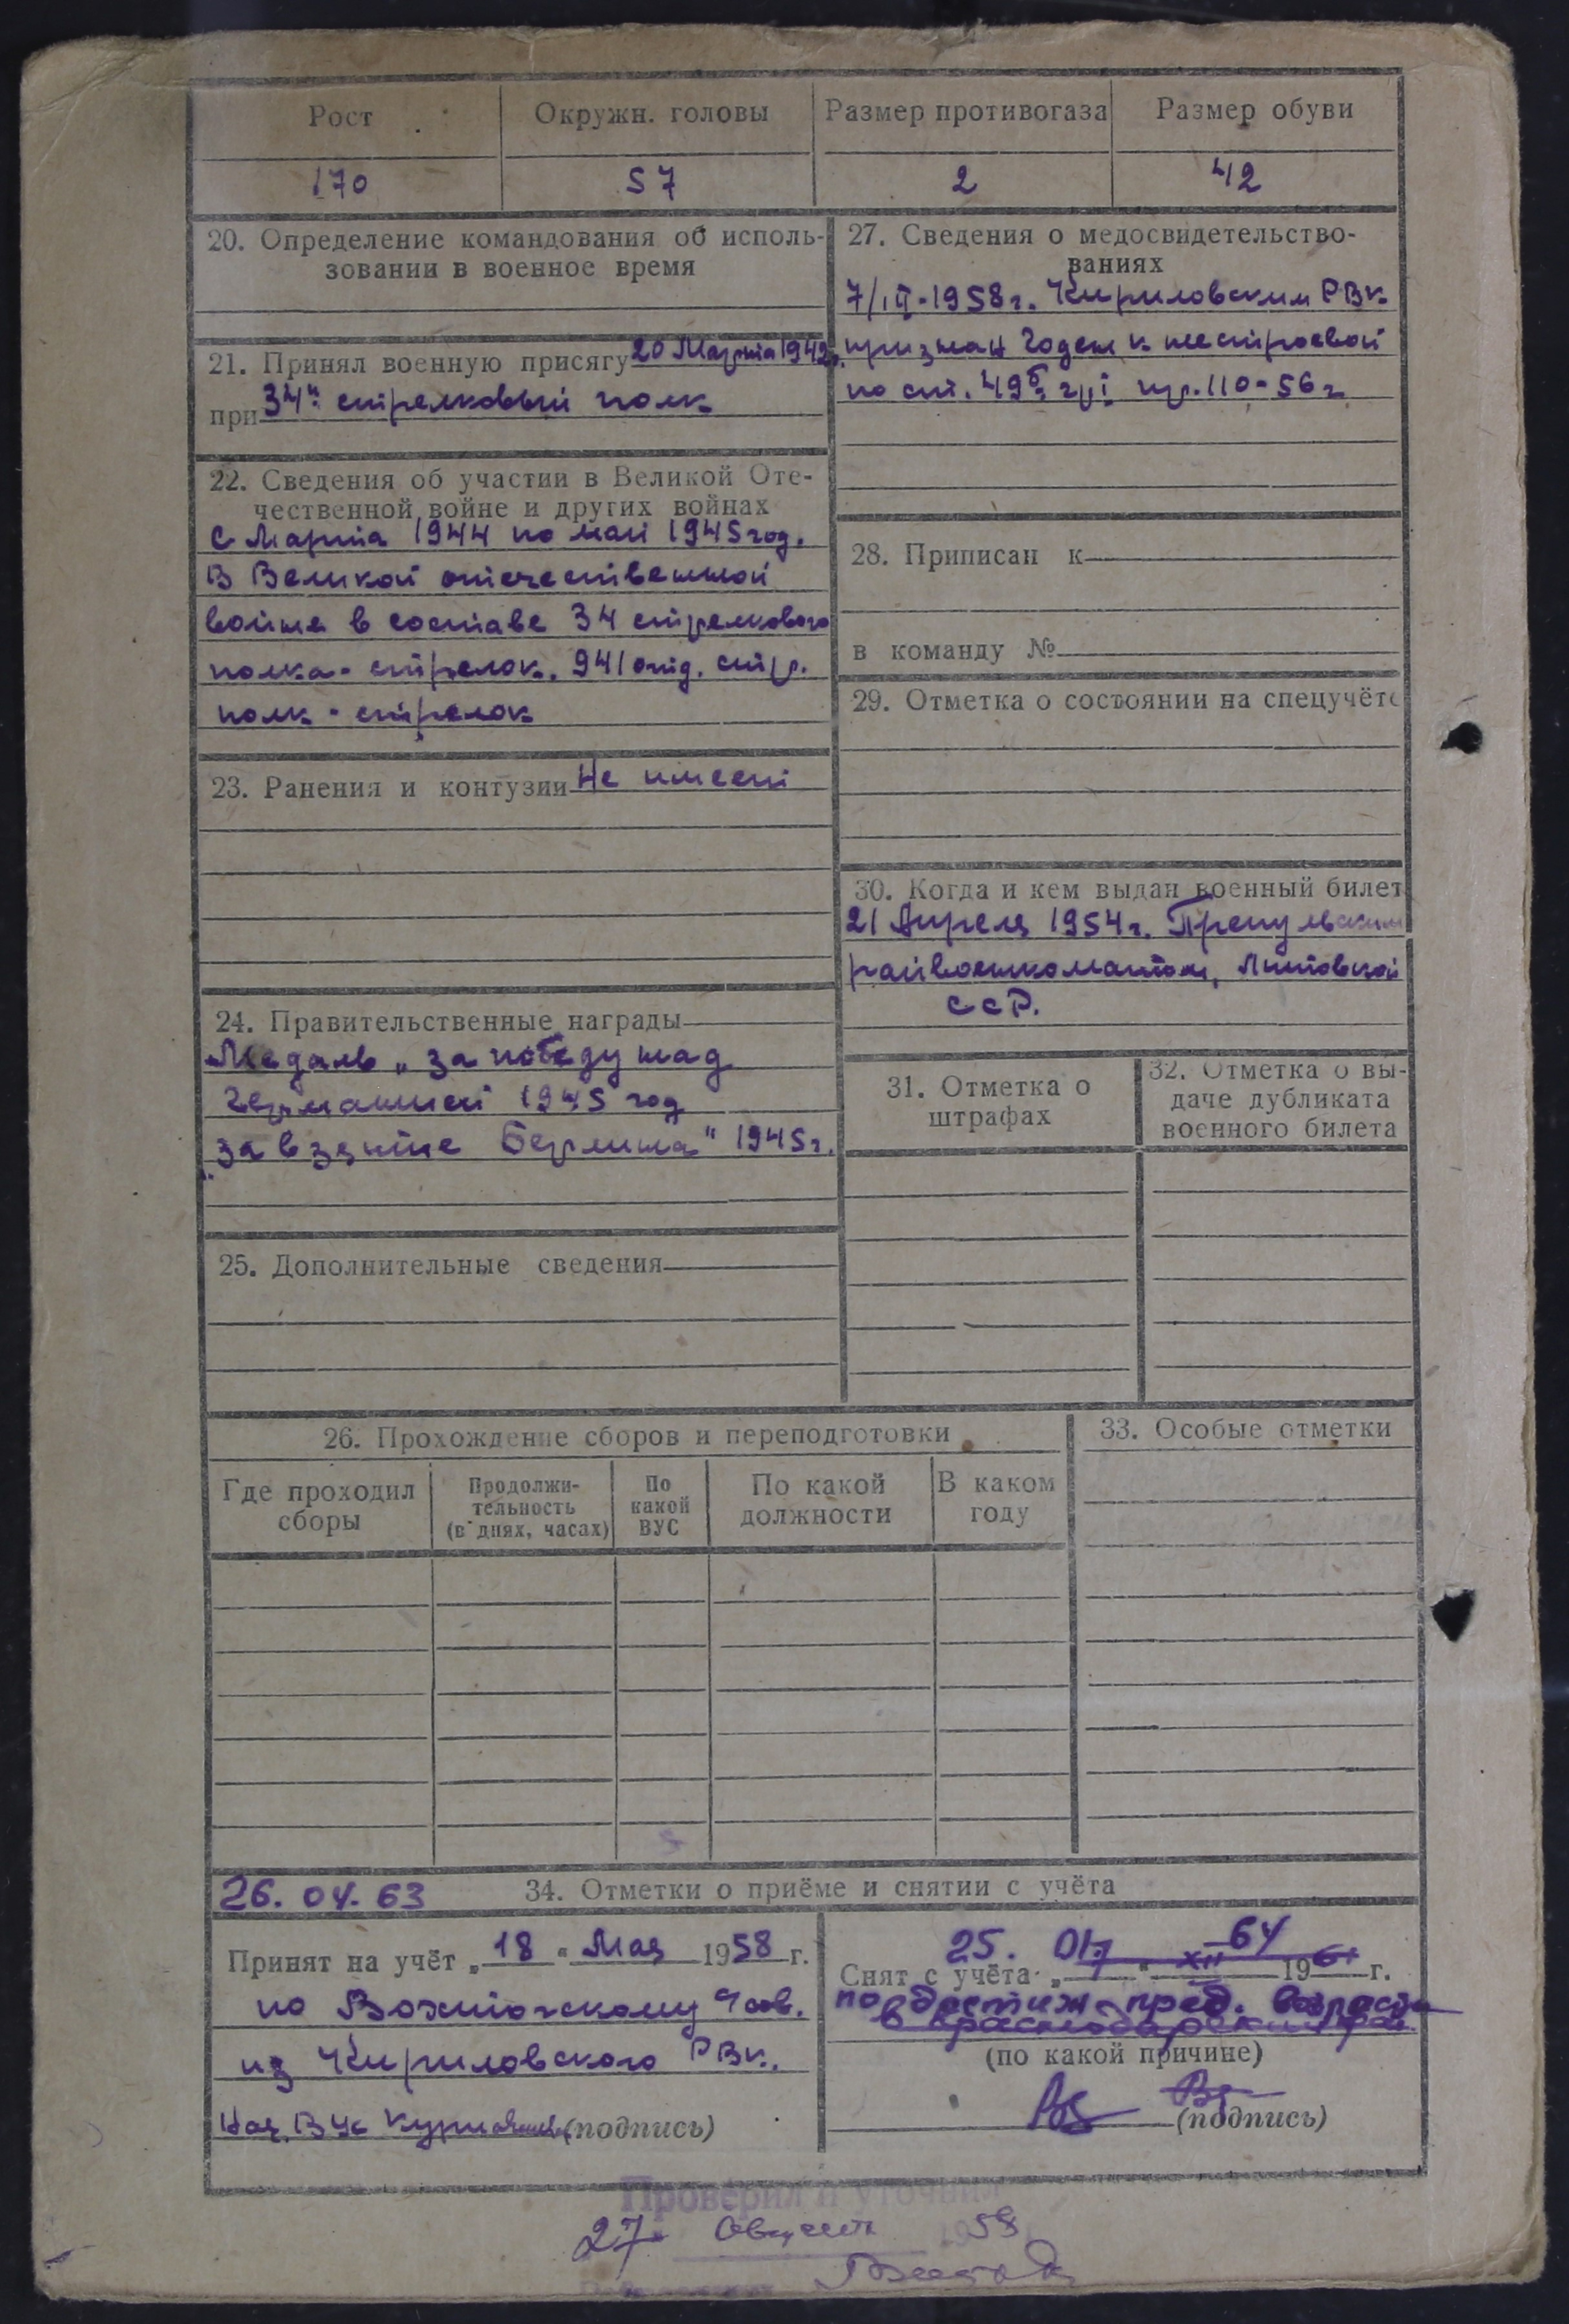 Рост Окружн. головы Размер противогаза Размер обуви
170 57 2 42
20. Определение командования об исполь-
зовании в военное время
21. Принял военную присягу 20 Марта 1942г.
при 34й стрелковый полк
22. Сведения об участии в Великой Оте-
чественной войне и других войнах
С Марта 1944 по май 1945 год.
В Великой отечественной
войне в составе 34 стрелкового
полка - стрелок. 941 отд. стр.
полк - стрелок
23. Ранения и контузии Не имеет
24. Правительственные награды
Медаль „за победу над
Германией 1945 год
„за взятие Берлина" 1945г.
25. Дополнительные сведения
27. Сведения о медосвидетельство-
ваниях
1958г. Кириловским РВК
признан годен к нестроевой
по ст. 49б гр I пр. 110-56г
28. Приписан к
в команду №
29. Отметка о состоянии на спецучёте
30. Когда и кем выдан военный билет
21 Апреля 1954г.
райвоенкоматом, Литовской
ССР.
31. Отметка о
штрафах
32. Отметка о вы-
даче дубликата
военного билета
26. Прохождение сборов и переподготовки
Где проходил
сборы
Продолжи-
тельность
(в днях, часах)
По
какой
ВУС
По какой
должности
В каком
году
33. Особые отметки
26. 04. 63 34. Отметки о приёме и снятии с учёта
Принят на учёт „18" Мая 1958 г.
по Вожтогскому Чсов.
из Кириловского РВК.
Нач. ВУС (подпись)
25. 01. 64
Снят с учёта „7" XII 1961 г.
по достиж. пред. возраста
в Краснодарский край
(по какой причине)
(подпись)
Проверил и уточнил
27 Август 1958